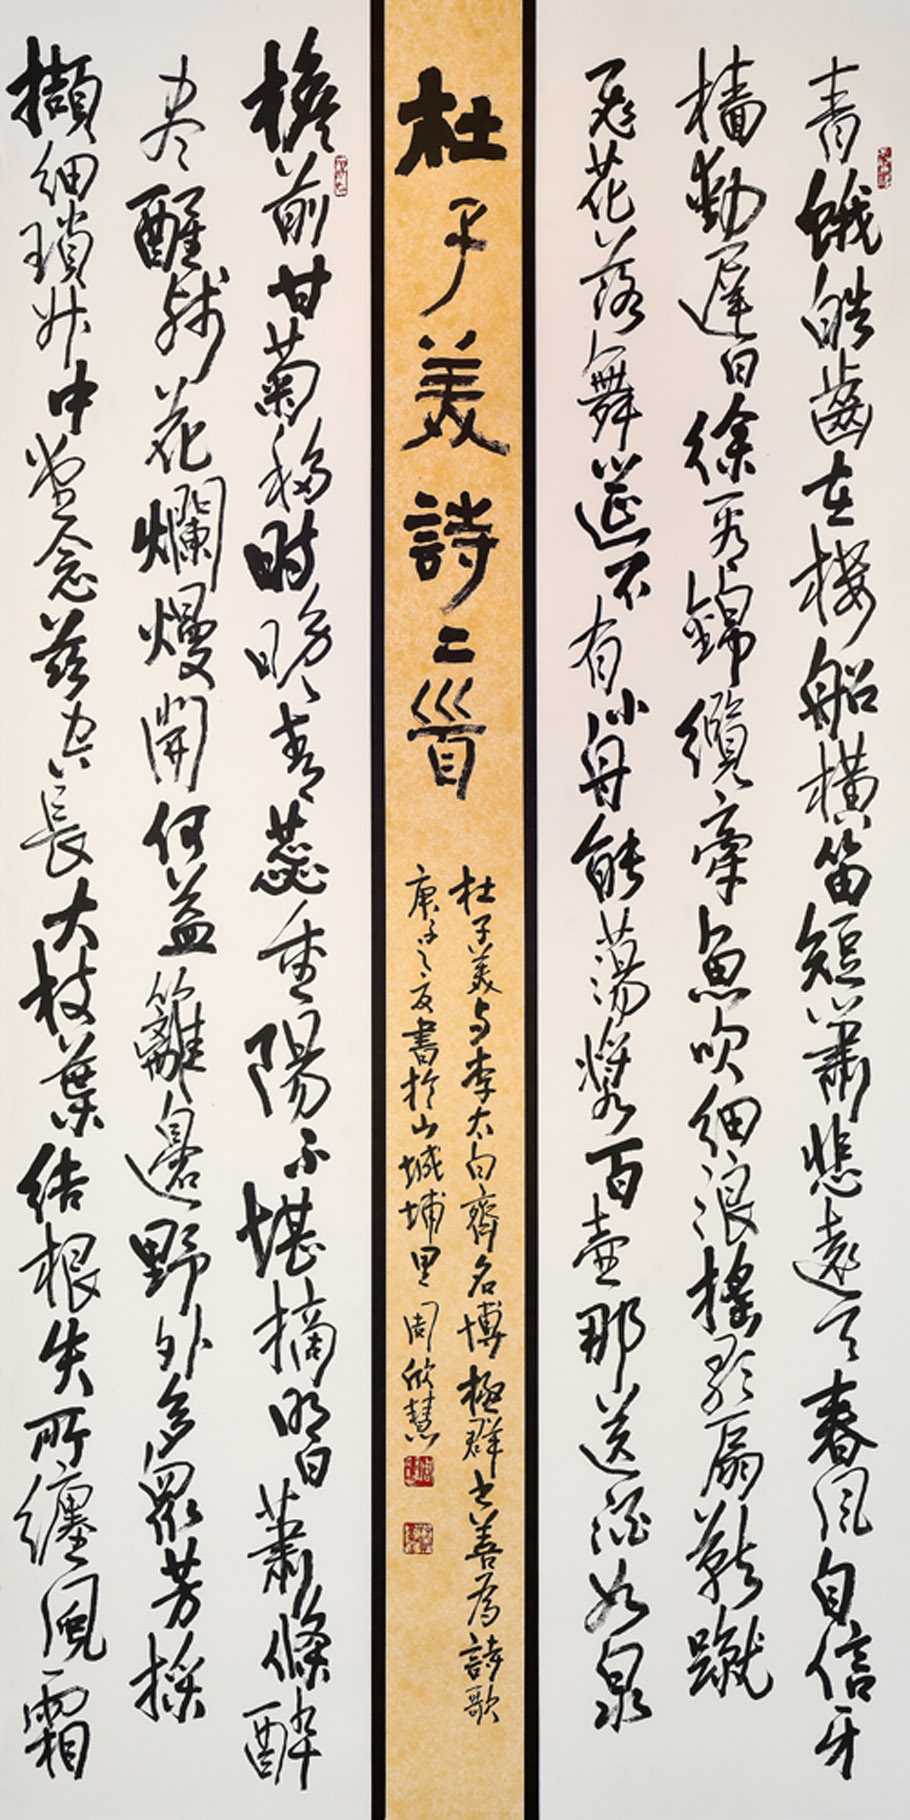 青蛾皓齒在樓船橫笛短簫悲遠天春風自信牙
檣動遲日徐看錦纜牽魚吹細浪搖歌扇燕蹴
飛花落舞筵不有小舟能蕩槳百壺那送酒如泉
杜子美詩二首
杜子美与李太白齊名博極群書善為詩歌
庚子之夏書於山城埔里周欣慧
檐前甘菊移時晚青蕊重陽不堪摘明日蕭條醉
尽醒殘花爛熳開何益籬邊野外多眾芳採
擷細瑣升中堂念茲空長大枝葉結根失所纏風霜